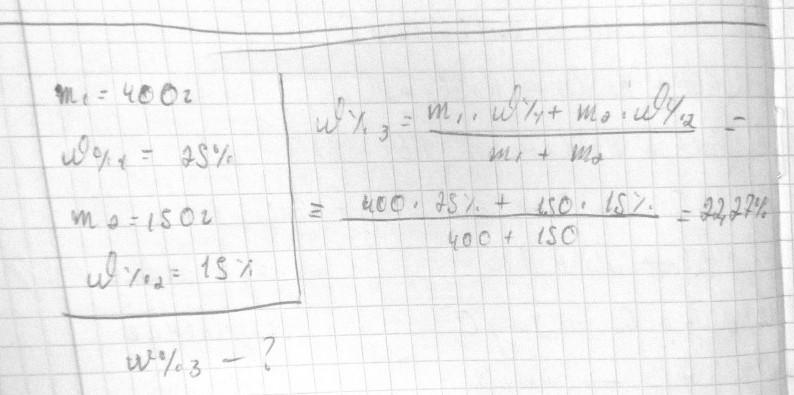 m₁ = 400г
ω%₁ = 25%
m₂ = 150г
ω%₂ = 15%
ω%₃ - ?
ω%₃ = (m₁ · ω%₁ + m₂ · ω%₂) / (m₁ + m₂) =
= (400 · 25% + 150 · 15%) / (400 + 150) = 22,27%